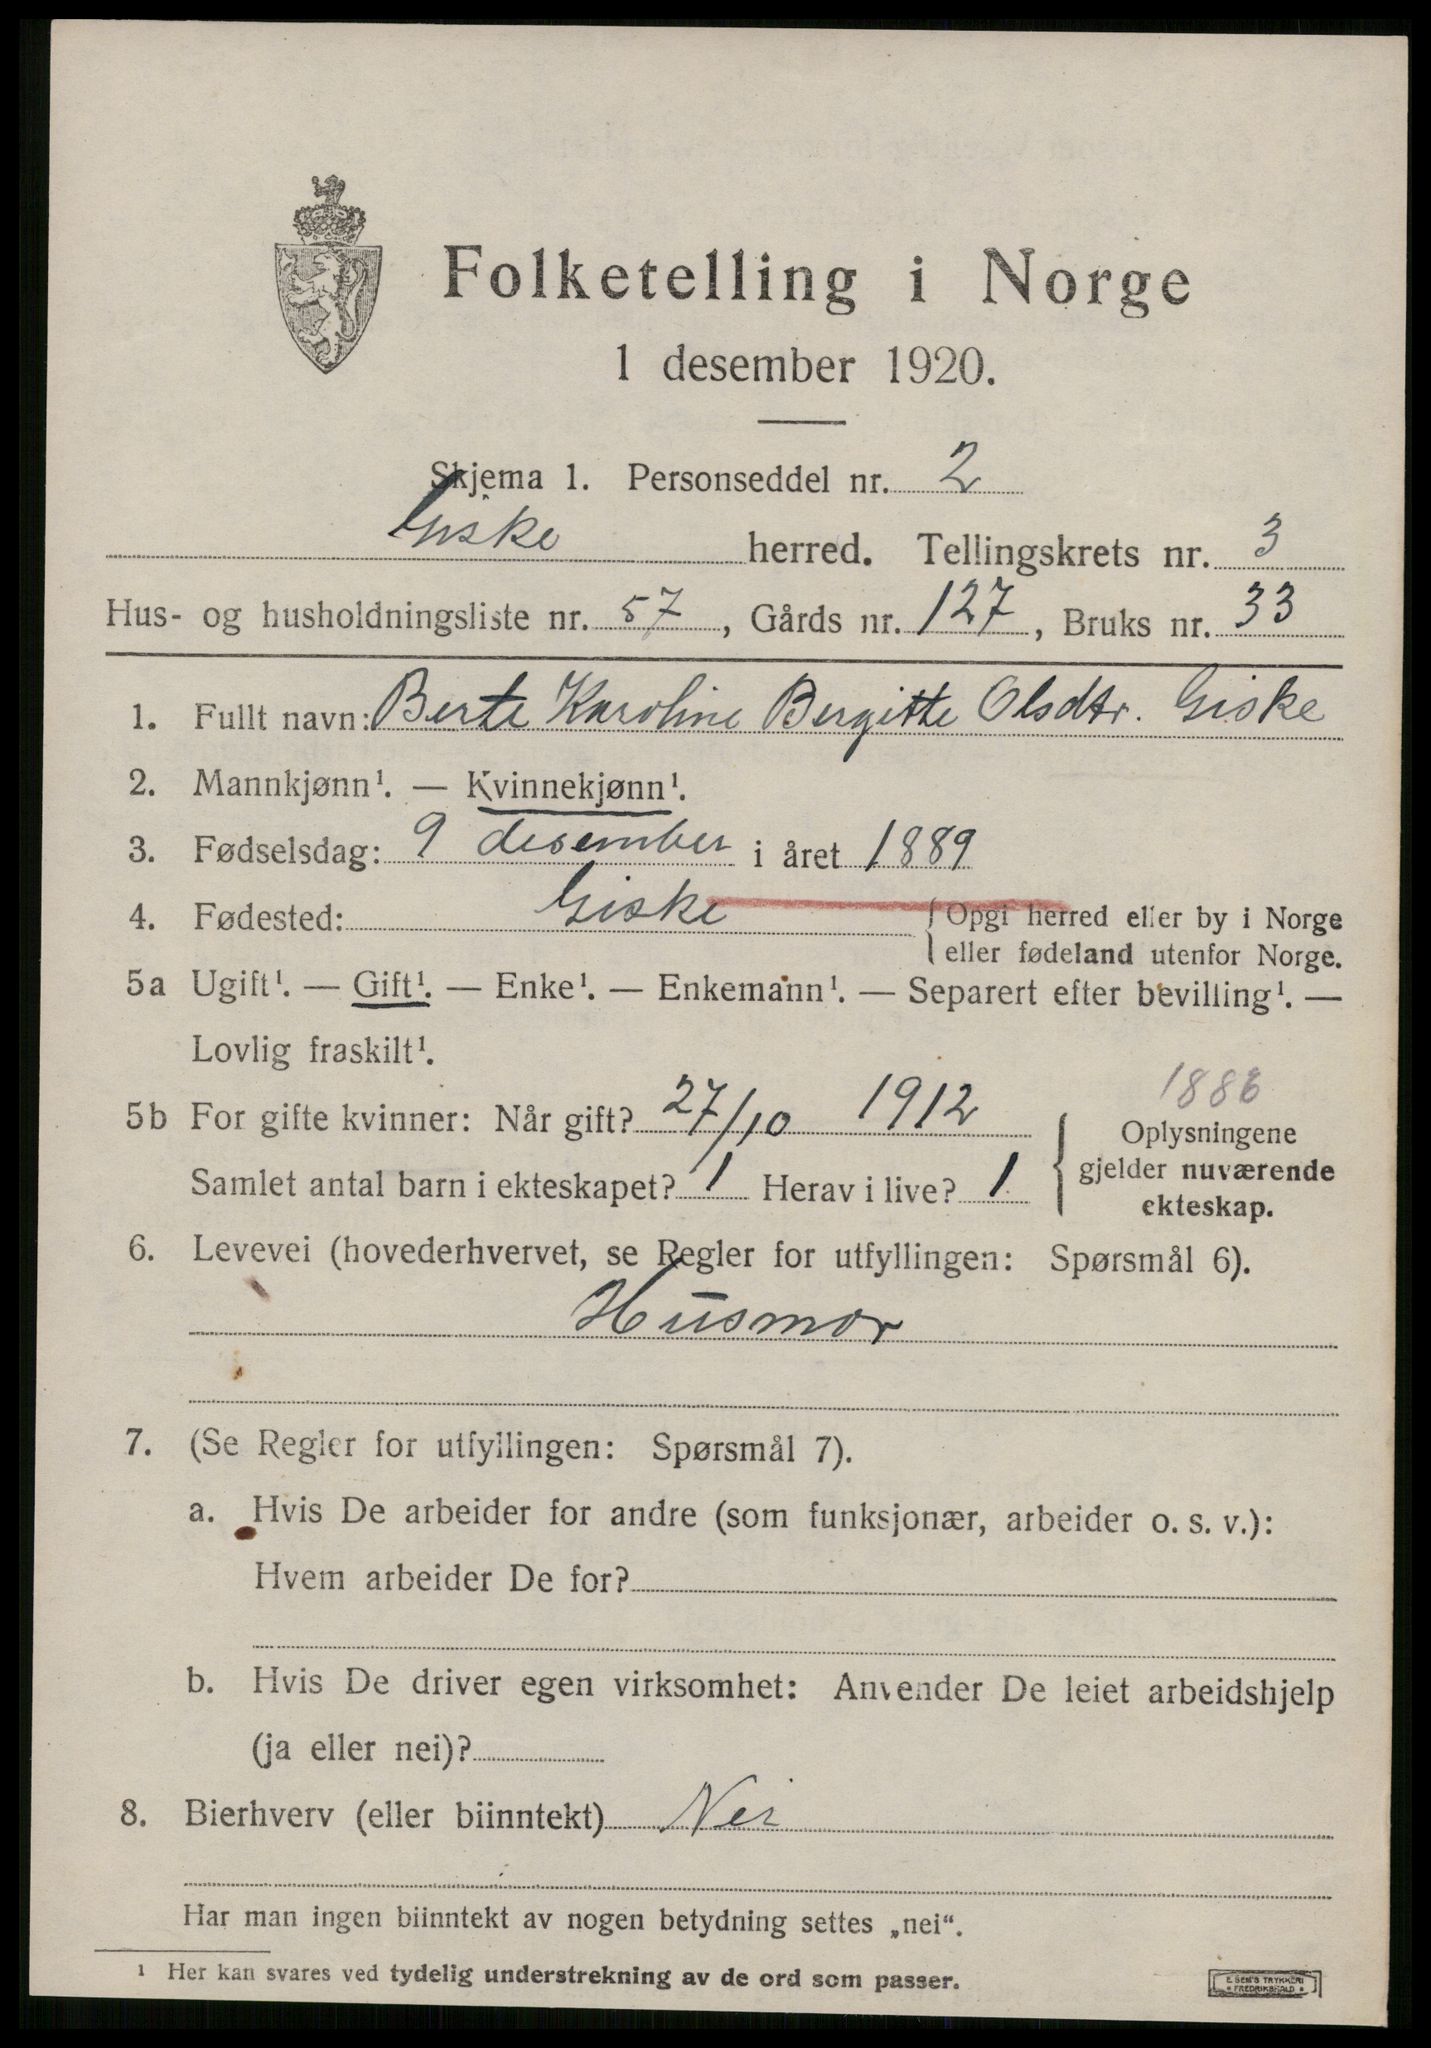 Folketelling i Norge
1 desember 1920.
Skjema 1. Personseddel nr. 2
Giske herred. Tellingskrets nr. 3
Hus- og husholdningsliste nr. 57, Gårds nr. 127, Bruks nr. 33
1. Fullt navn: Berte Karoline Bergitte Olsdtr. Giske
2. Mannkjønn¹. — Kvinnekjønn¹.
3. Fødselsdag: 9 desember i året 1889
4. Fødested: Giske { Opgi herred eller by i Norge
eller fødeland utenfor Norge.
5a Ugift¹. — Gift¹. — Enke¹. — Enkemann¹. — Separert efter bevilling¹. —
Lovlig fraskilt¹.
1886
5b For gifte kvinner: Når gift? 27/10 1912
Samlet antal barn i ekteskapet? 1 Herav i live? 1
Oplysningene
gjelder nuværende
ekteskap.
6. Levevei (hovederhvervet, se Regler for utfyllingen: Spørsmål 6).
Husmor
7. (Se Regler for utfyllingen: Spørsmål 7).
a. Hvis De arbeider for andre (som funksjonær, arbeider o. s. v.):
Hvem arbeider De for?
b. Hvis De driver egen virksomhet: Anvender De leiet arbeidshjelp
(ja eller nei)?
8. Bierhverv (eller biinntekt) Nei
Har man ingen biinntekt av nogen betydning settes „nei“.
¹ Her kan svares ved tydelig understrekning av de ord som passer.
E. SEM'S TRYKKERI
FREDRIKSHALD